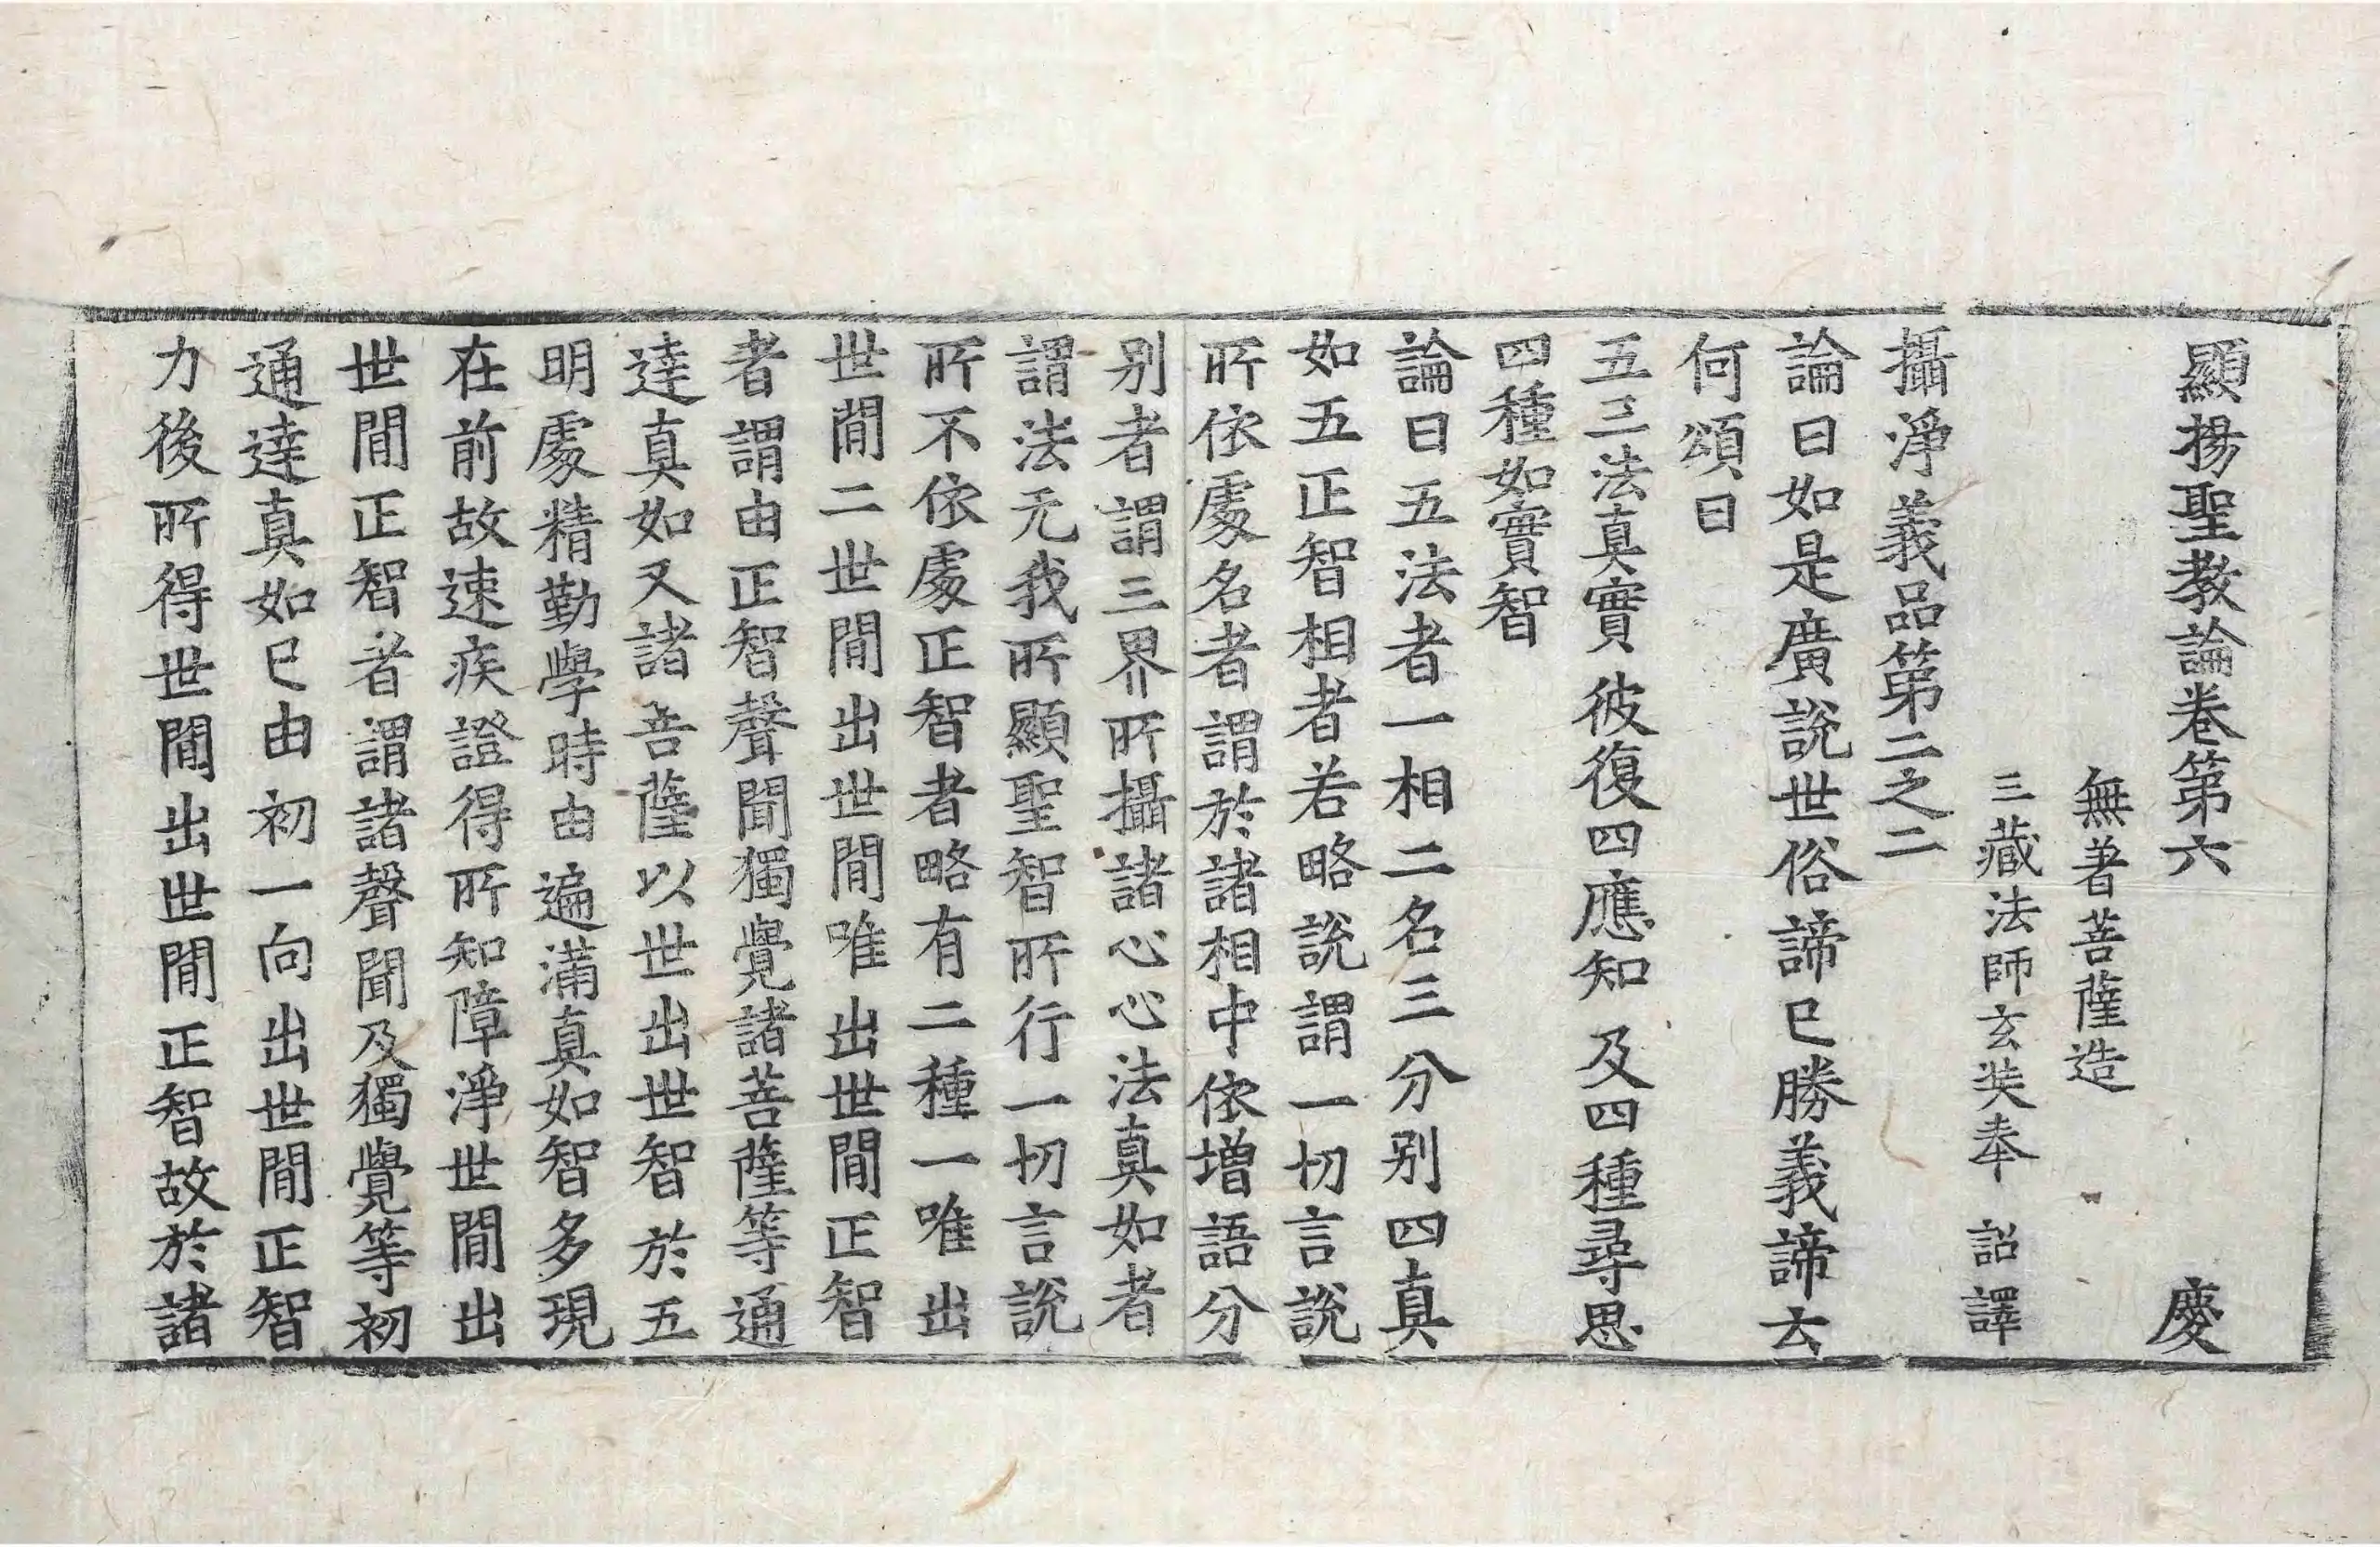 顯揚聖教論卷第六 慶
無著菩薩造
三藏法師玄奘奉 詔譯
攝淨義品第二之二
論曰如是廣說世俗諦已勝義諦云
何頌曰
五三法真實 彼復四應知 及四種尋思
四種如實智
論曰五法者一相二名三分别四真
如五正智相者若略說謂一切言說
所依處名者謂於諸相中依增語分
别者謂三界所攝諸心心法真如者
謂法无我所顯聖智所行一切言說
所不依處正智者略有二種一唯出
世間二世間出世間唯出世間正智
者謂由正智聲聞獨覺諸菩薩等通
達真如又諸菩薩以世出世智於五
明處精勤學時由遍滿真如智多現
在前故速疾證得所知障淨世間出
世間正智者謂諸聲聞及獨覺等初
通達真如已由初一向出世間正智
力後所得世間出世間正智故於諸